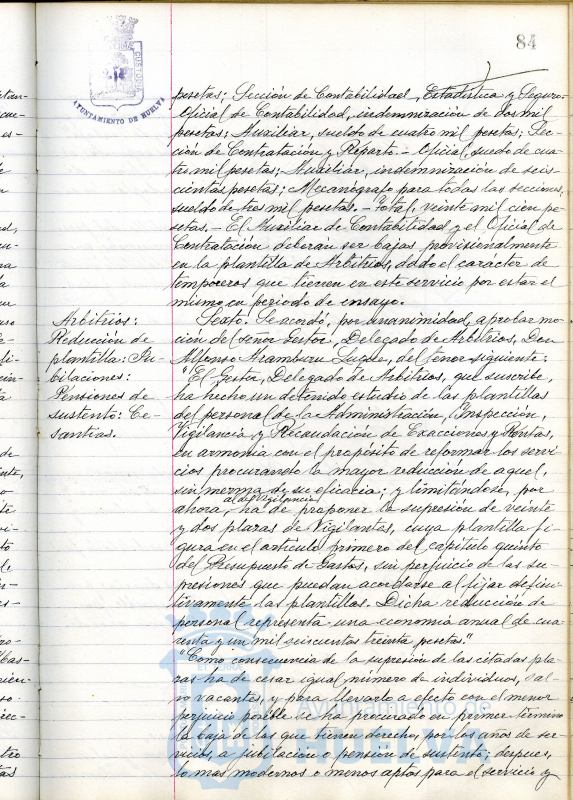 84
AYUNTAMIENTO DE HUELVA
pesetas; Sección de Contabilidad, Estadística y Seguro.-
Oficial de Contabilidad, indemnización de dos mil
pesetas; Auxiliar, sueldo de cuatro mil pesetas; Sec-
ción de Contratación y Reparto.- Oficial, suedo de cua-
tro mil pesetas; Auxiliar, indemnización de seis-
cientas pesetas; Mecanógrafo para todas las secciones,
sueldo de tres mil pesetas.- Total, veinte mil cien pe-
setas.- El Auxiliar de Contabilidad y el Oficial de
Contratación deberan ser bajas provisionalmente
en la plantilla de Arbitrios, dado el carácter de
temporeros que tienen en este servicio por estar el
mismo en periodo de ensayo.
Arbitrios:
Reducción de
plantilla: Ju-
bilaciones:
Pensiones de
sustento: Ce-
santias.
Sexto. Se acordó, por unanimidad, aprobar mo-
ción del señor Gestor, Delegado de Arbitrios, Don
Alfonso Aramburu Luque, del tenor siguiente:
"El Gestor, Delegado de Arbitrios, que suscribe,
ha hecho un detenido estudio de las plantillas
del personal de la Administración, Inspección,
Vigilancia y Recaudación de Exacciones y Rentas,
en armonia con el propósito de reformar los servi-
cios procurando la mayor reducción de aquel,
sin merma de su eficacia; y limitándose, por
ahora, al de Vigilancia, ha de proponer la supresion de veinte
y dos plazas de Vigilantes, cuya plantilla fi-
gura en el artículo primero del capítulo quinto
del Presupuesto de Gastos, sin perjuicio de las su-
presiones que puedan acordarse al fijar defini-
tivamente las plantillas. Dicha reducción de
personal representa una economía anual de cua-
renta y un mil seiscientas treinta pesetas."
"Como consecuencia de la supresión de las citadas pla-
zas ha de cesar igual número de individuos, sal-
vo vacantes, y para llevarlo a efecto con el menor
perjuicio posible se ha procurado en primer termino
la baja de los que tienen derecho, por los años de ser-
vicios, a jubilación o pensión de sustento; despues,
lo mas modernos o menos aptos para el servicio y
Ayuntamiento de